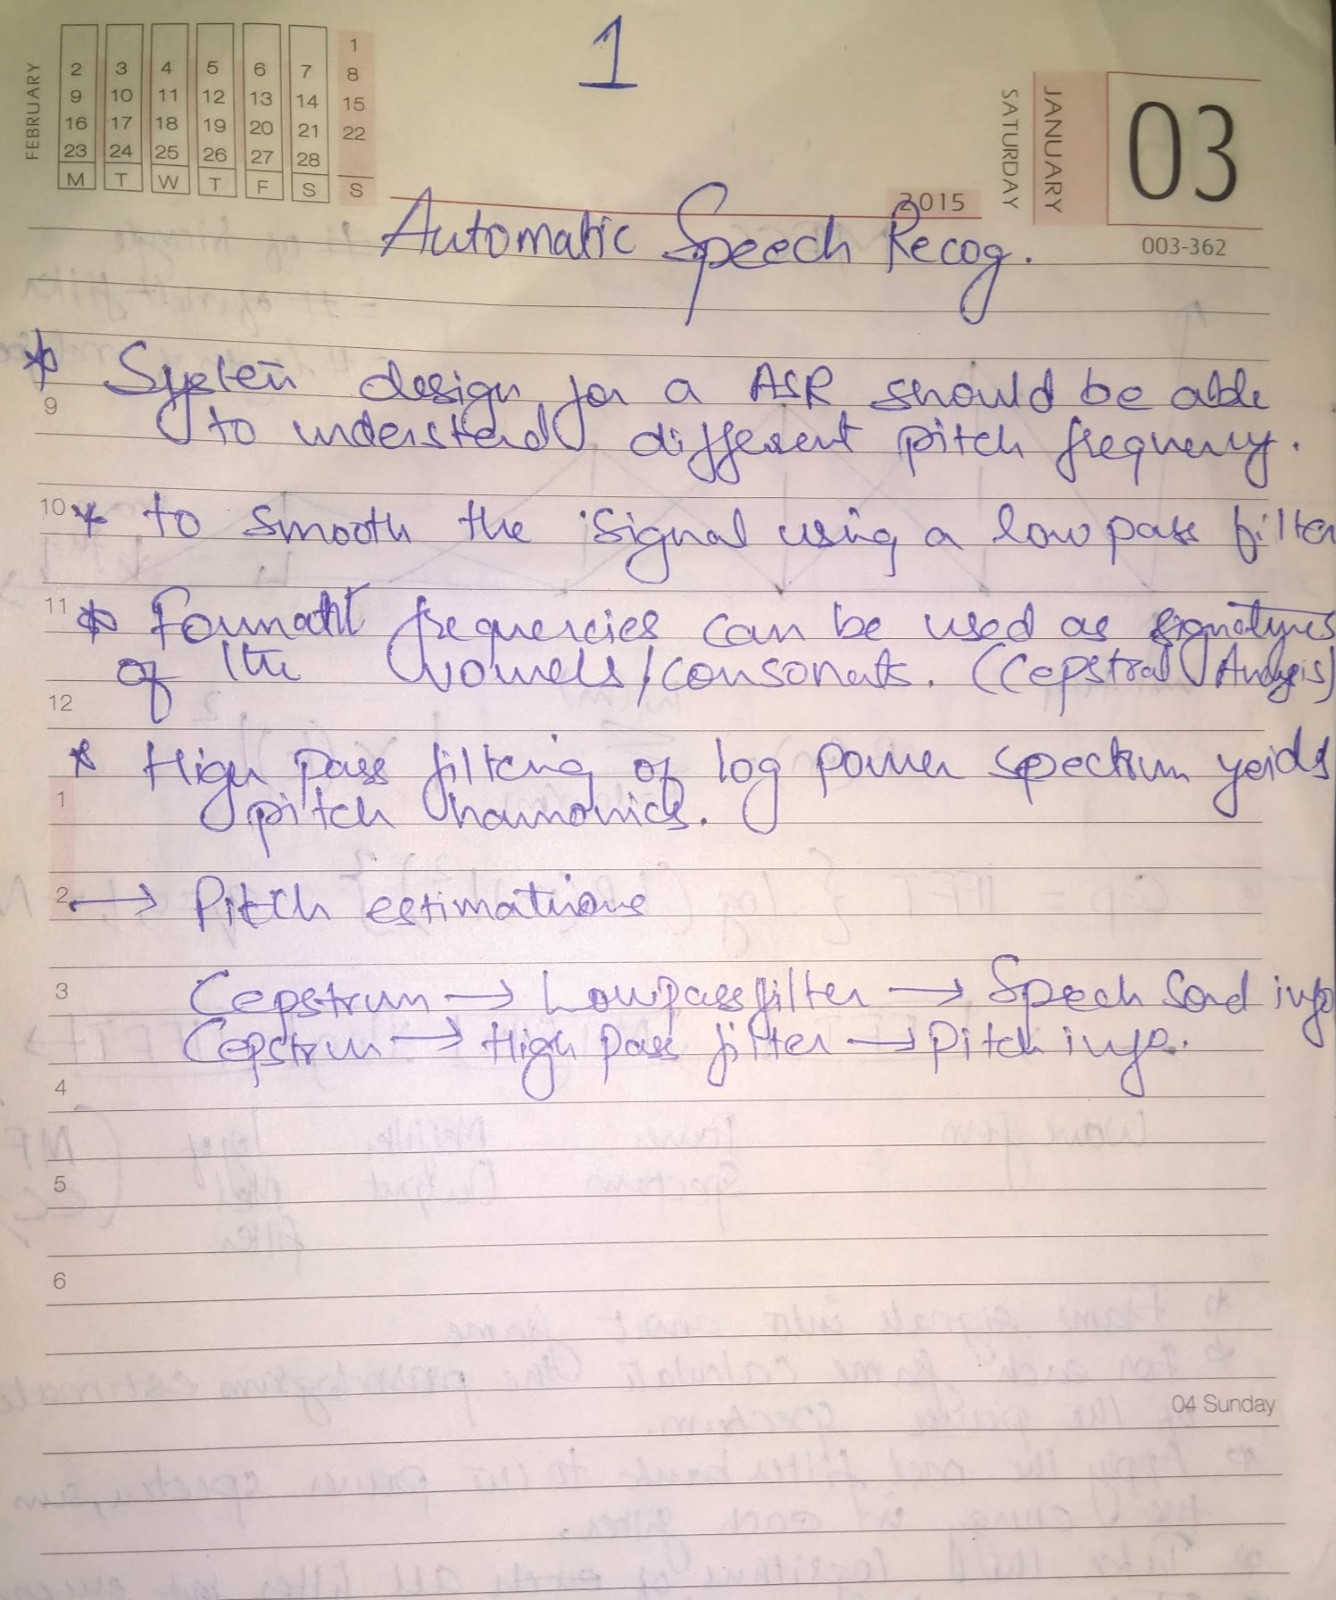 1
FEBRUARY
2 3 4 5 6 7 1
9 10 11 12 13 14 8
16 17 18 19 20 21 15
23 24 25 26 27 28 22
M T W T F S S
2015
SATURDAY
JANUARY
03
003-362
Automatic Speech Recog.
* System design for a ASR should be able
9
to understand different pitch frequency.
10 * to smooth the signal using a low pass filter
11 * Formant frequencies can be used as signatures
of the vowels/consonants. (Cepstral Analysis)
12
* High pass filtering of log power spectrum yeids
1
pitch harmonics.
2 → Pitch estimations
3 Cepstrum → Lowpassfilter → Speech Sond info
Cepstrum → High Pass filter → Pitch info.
4
5
6
04 Sunday